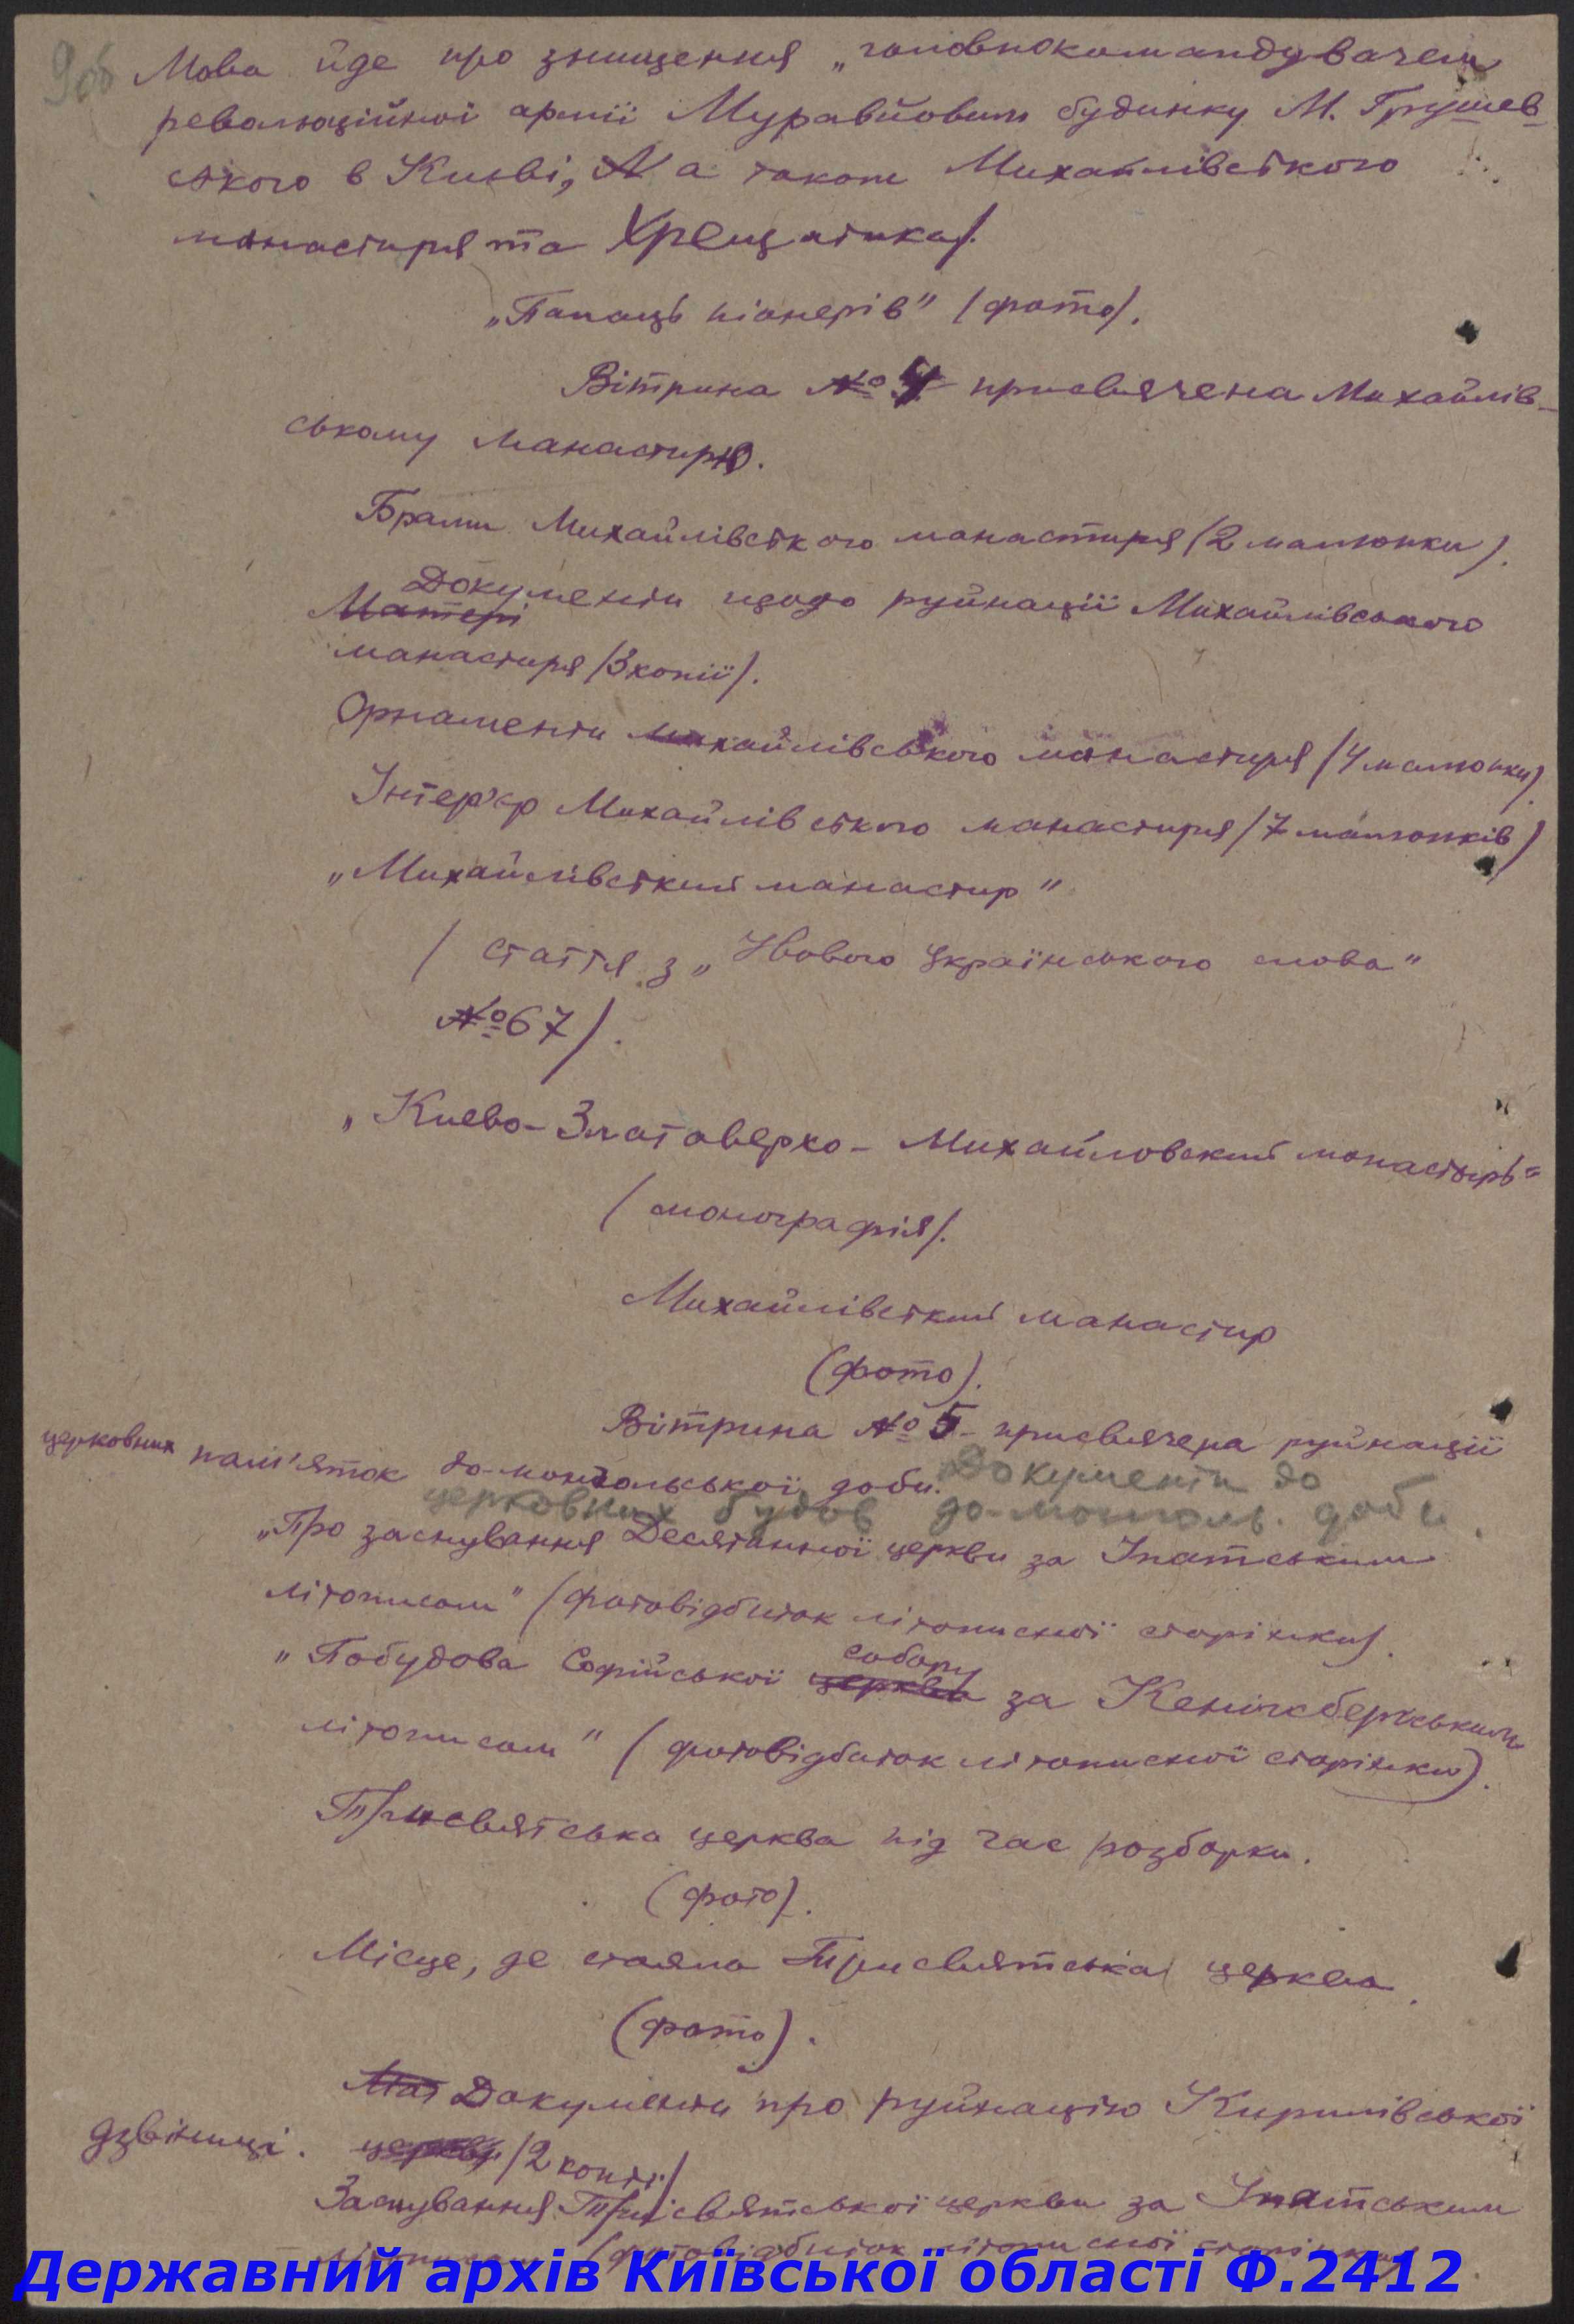 9об
Мова йде про знищення „головнокомандувачем
революційної армії Муравйовим будинку М. Грушев-
ського в Києві, а також Михайлівського
манастиря та Хрещатика/.
„Палаць піонерів" /фото/.
Вітрина № 4 присвячена Михайлів-
ському манастирю.
Брами Михайлівського манастиря /2 малюнки/.
Матері Документи щодо руйнації Михайлівського
манастиря /3 копії/.
Орнаменти Михайлівського манастиря /4 малюнки/.
Інтер'єр Михайлівського манастиря /7 малюнків/
„Михайлівський манастир"
/ стаття з „Нового Українського слова"
№ 67/.
„Киево-Златоверхо-Михайловский монастырь"
/монографія/.
Михайлівський манастир
(фото).
Вітрина № 5 присвячена руйнації
церковних пам'яток до-монгольської доби. Документи до
церковних будов до-монголь. доби.
„Про заснування Десятинної церкви за Іпатським
літописом" /фотовідбиток літописної сторінки/.
„Побудова Софійської церкви собору за Кенігсберґським
літописом" (фотовідбиток літописної сторінки).
Трисвятська церква під час розборки.
(фото).
Місце, де стояла Трисвятська церква.
(фото).
Мат Документи про руйнацію Кирилівської
дзвіниці. церкви /2 копії/
Заснування Трисвятської церкви за Іпатським
літописом /фотовідбиток літописної сторінки/.
Державний архів Київської області Ф.2412